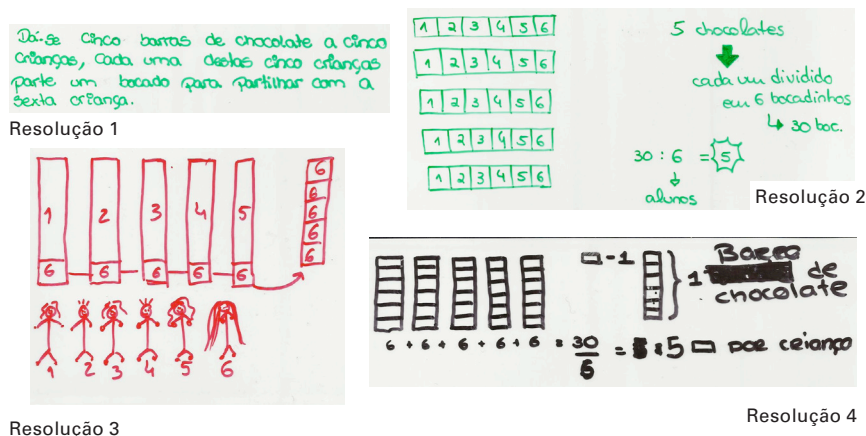 Dá-se cinco barras de chocolate a cinco
crianças, Cada uma destas cinco crianças
parte um bocado para partilhar com a
sexta criança.
Resolução 1
1 2 3 4 5 6
1 2 3 4 5 6
1 2 3 4 5 6
1 2 3 4 5 6
1 2 3 4 5 6
5 chocolates
cada um dividido
em 6 bocadinhos
30 boc.
30 : 6 = 5
alunos
Resolução 2
1 2 3 4 5
6 6 6 6 6
6
6
6
6
6
1 2 3 4 5 6
Resolução 3
- 1
1 Barra
de
chocolate
6 + 6 + 6 + 6 + 6 = 30
6
= 5 por criança
Resolução 4